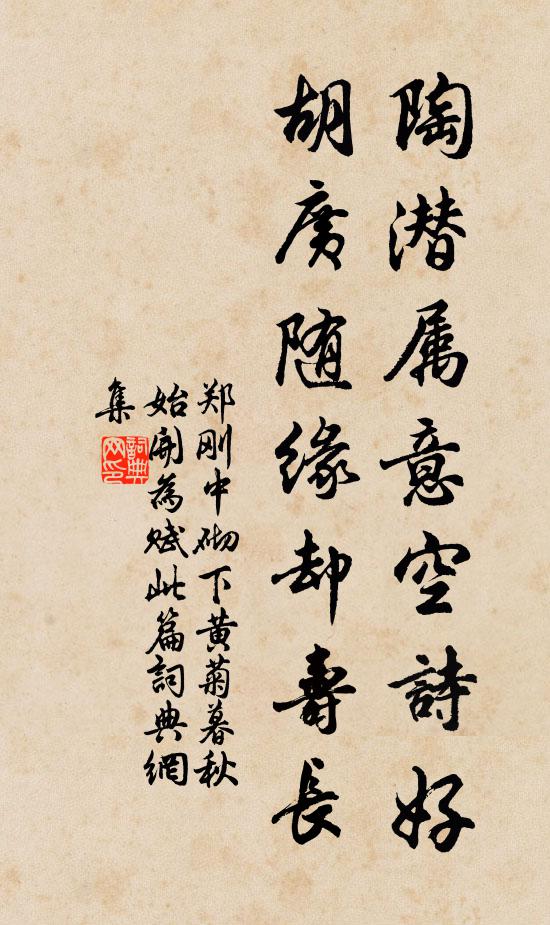 陶潜属意空詩好
胡廣随緣却壽長
郑刚中砌下黄菊暮秋
始開為赋此篇詞典網
集
詞典網印